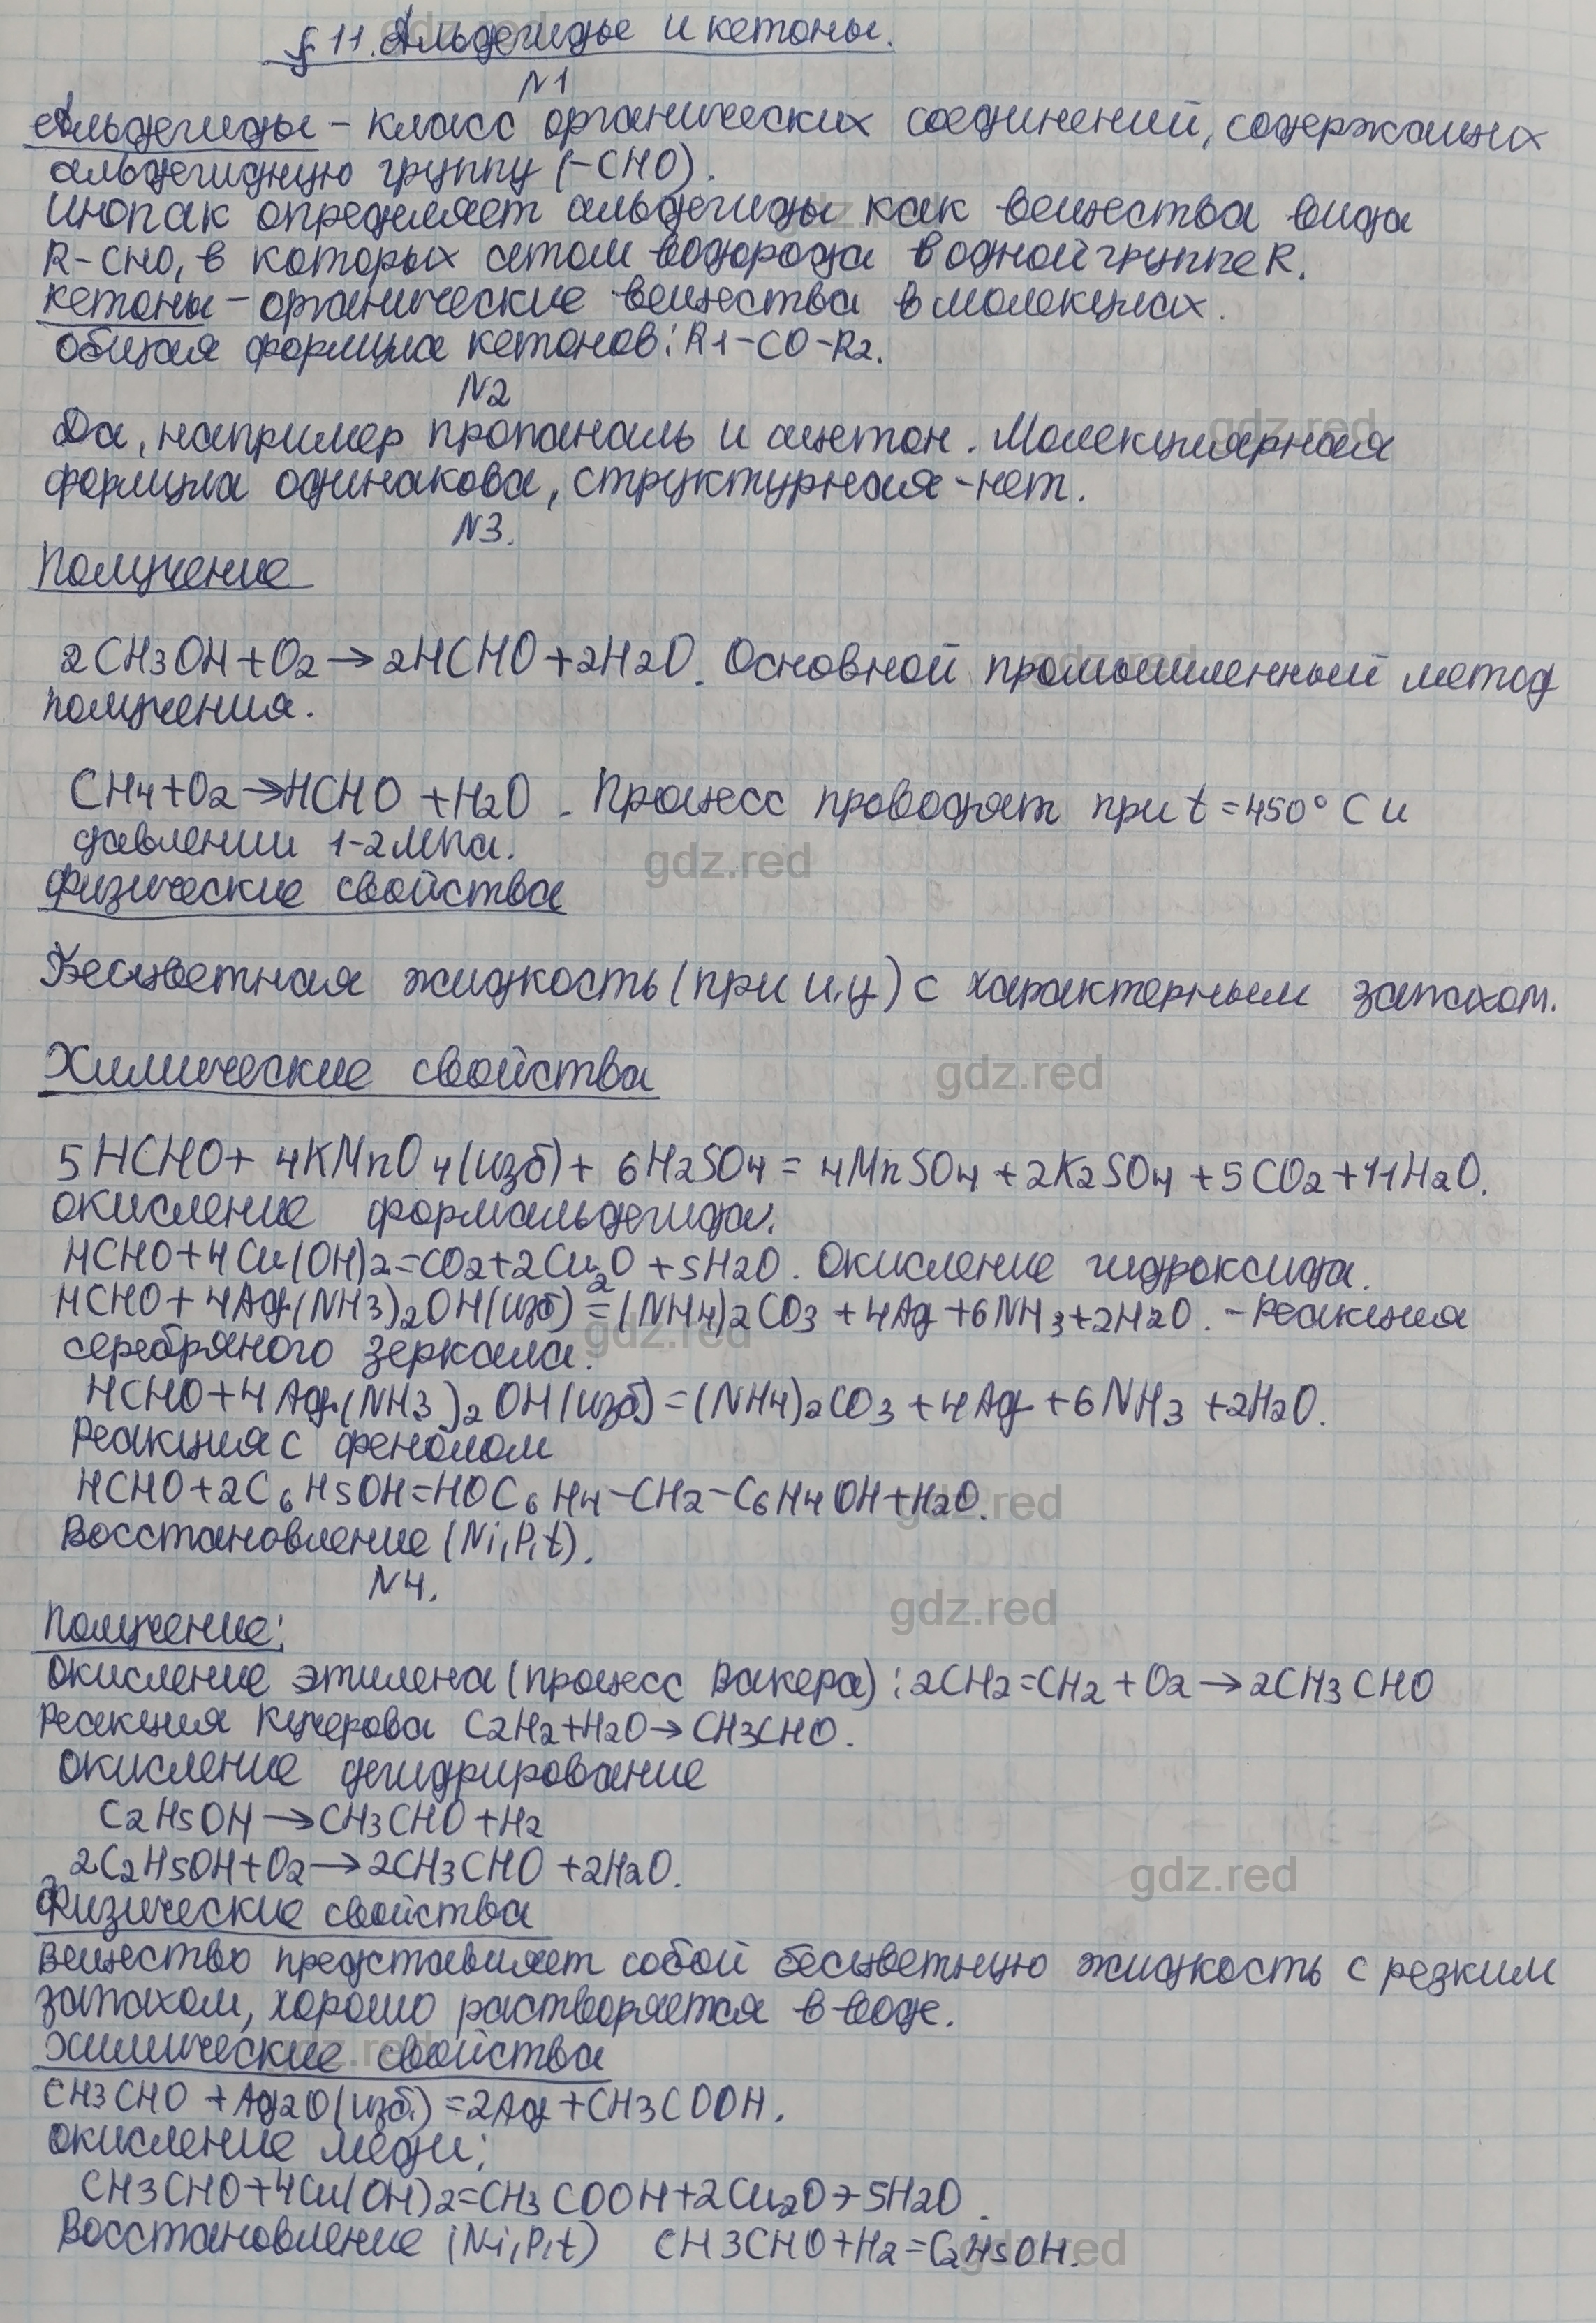 § 11. Альдегиды и кетоны.
N1
Альдегиды - класс органических соединений, содержащих
альдегидную группу (-CHO).
Инопак определяет альдегиды как вещества вида
R-CHO, в которых атом водорода в одной группе R.
Кетоны - органические вещества в молекулах.
Общая формула кетонов: R1-CO-R2.
N2
Да, например пропаналь и ацетон. Молекулярная
формула одинакова, структурная - нет.
N3.
Получение
2CH3OH+O2→2HCHO+2H2O. Основной промышленный метод
получения.
CH4+O2→HCHO+H2O. Процесс проводят при t=450°C и
давлении 1-2МПа.
Физические свойства
Бесцветная жидкость (при и.у) с характерным запахом.
Химические свойства
5HCHO+4KMnO4(изб)+6H2SO4=4MnSO4+2K2SO4+5CO2+11H2O.
Окисление формальдегида.
HCHO+4Cu(OH)2=CO2+2Cu2O+5H2O. Окисление гидроксида.
HCHO+4Ag(NH3)2OH(изб)=(NH4)2CO3+4Ag+6NH3+2H2O. - Реакция
серебряного зеркала.
HCHO+4Ag(NH3)2OH(изб)=(NH4)2CO3+4Ag+6NH3+2H2O.
Реакция с фенолом
HCHO+2C6H5OH=HOC6H4-CH2-C6H4OH+H2O.
Восстановление (Ni,P,t).
N4.
Получение:
Окисление этилена (процесс Вакера): 2CH2=CH2+O2→2CH3CHO
Реакция Кучерова C2H2+H2O→CH3CHO.
Окисление дегидрирование
C2H5OH→CH3CHO+H2
2C2H5OH+O2→2CH3CHO+2H2O.
Физические свойства
Вещество представляет собой бесцветную жидкость с резким
запахом, хорошо растворяется в воде.
Химические свойства
CH3CHO+Ag2O(изб.)=2Ag+CH3COOH.
Окисление меди:
CH3CHO+4Cu(OH)2=CH3COOH+2Cu2O+5H2O.
Восстановление (Ni,P,t) CH3CHO+H2=C2H5OH.
gdz.red
gdz.red
gdz.red
gdz.red
gdz.red
gdz.red
gdz.red
gdz.red
gdz.red
gdz.red
gdz.red
gdz.red